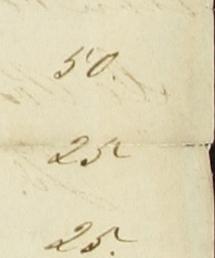 50.
25
25.